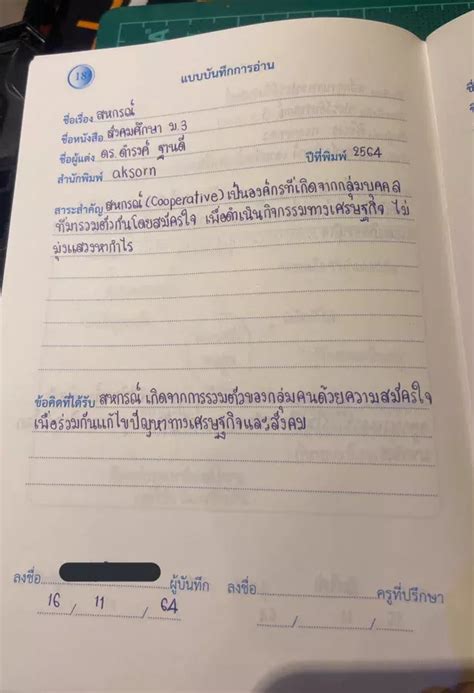 18
แบบบันทึกการอ่าน
ชื่อเรื่อง สหกรณ์
ชื่อหนังสือ สังคมศึกษา ม.3
ชื่อผู้แต่ง ดร.ดำรงค์ ฐานดี ปีที่พิมพ์ 2564
สำนักพิมพ์ aksorn
สาระสำคัญ สหกรณ์ (Cooperative) เป็นองค์กรที่เกิดจากกลุ่มบุคคล
ที่มารวมตัวกันโดยสมัครใจ เพื่อดำเนินกิจกรรมทางเศรษฐกิจ ไม่
มุ่งแสวงหากำไร
ข้อคิดที่ได้รับ สหกรณ์ เกิดจากการรวมตัวของกลุ่มคนด้วยความสมัครใจ
เพื่อร่วมกันแก้ไขปัญหาทางเศรษฐกิจและสังคม
ลงชื่อ ผู้บันทึก ลงชื่อ ครูที่ปรึกษา
16 / 11 / 64 / /